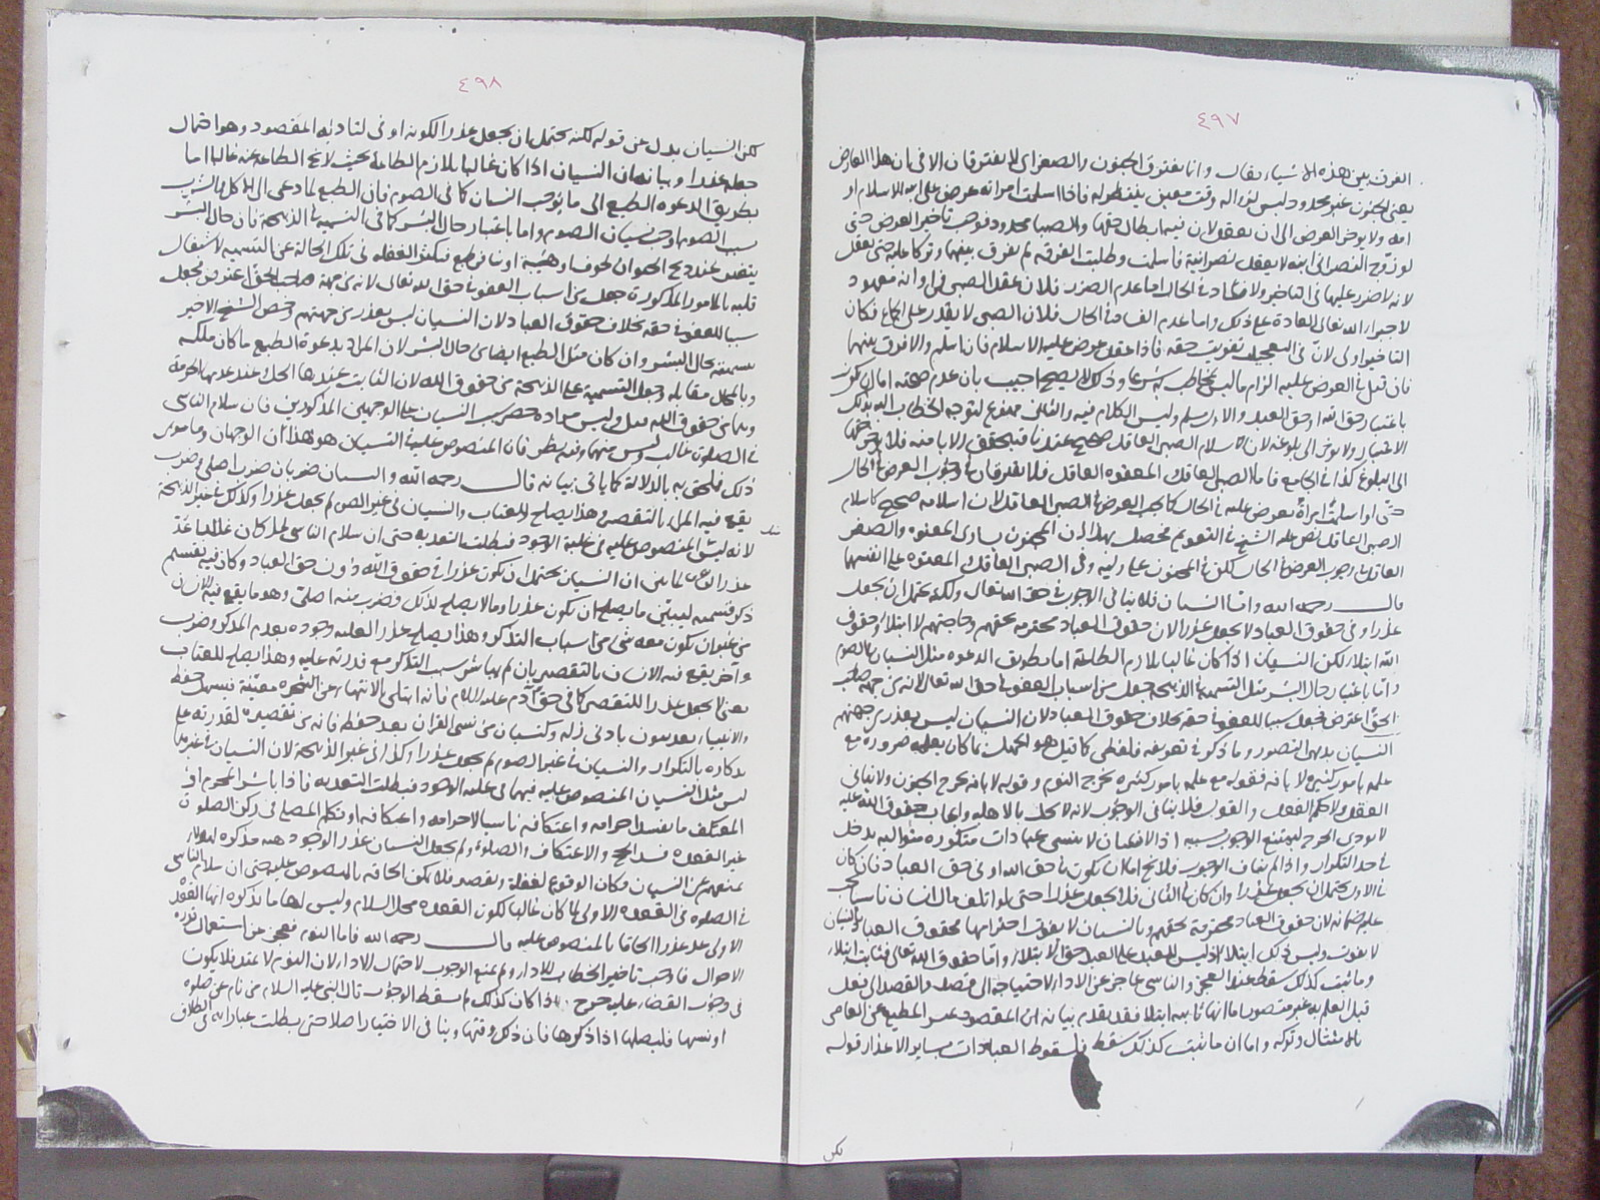 ٤٩٧
الفرق بين هذه الاشياء فقال وانما يفترق الجنون والصغر اى لا يفترقان الا فى ان هذا العارض
يعنى الجنون غير محدود ليس لزواله وقت معين ينتظر له فاذا اسلمت امرأته عرض على ابيه الاسلام او
امه ولا يؤخر العرض الى ان يعقل لان فيه ابطال حقها والصبا محدود فوجب تاخير العرض حتى
لو زوج النصرانى ابنه لا يعقل نصرانية فاسلمت وطلبت الفرقة لم يفرق بينهما وتركا عليه حتى يعقل
لانه لا ضرر عليها فى التاخير ولا فساد فى الحال اما عدم الضرر فلان عقل الصبى فى اوانه معهود
لاجراء الله تعالى العادة على ذلك واما عدم الفساد فى الحال فلان الصبى لا يقدر على الجماع فكان
التاخير اولى لان فى التعجيل تفويت حقه فاذا عقل عرض عليه الاسلام فان اسلم والا فرق بينهما
فان قيل فى العرض عليه الزام ما ليس بمخاطب به شرعا وذلك لا يصح اجيب بان عدم صحته اما ان يكون
باعتبار حق الله او حق العبد والاول مسلم وليس الكلام فيه والثانى ممنوع لتوجه الخطاب اليه بذلك
الاعتبار ولا يؤخر الى بلوغه لان اسلام الصبى العاقل صحيح عندنا فيتحقق الاباء منه فلا يؤخر حقها
الى البلوغ كذا فى الجامع فاما الصبى العاقل والمعتوه العاقل فلا يفترقان فى وجوب العرض فى الحال
حتى لو اسلمت امرأة يعرض عليه فى الحال كما يجب العرض فى الصبى العاقل لان اسلامه صحيح كاسلام
الصبى العاقل نص عليه الشيخ فى التقويم فحصل بهذا ان المجنون يساوى المعتوه والصغير
العاقل فى وجوب العرض فى الحال لكن فى المجنون على وليه وفى الصبى العاقل والمعتوه على انفسهما
قال رحمه الله واما النسيان فلا ينافى الوجوب فى حق الله تعالى ولكنه يحتمل ان يجعل
عذرا وفى حقوق العباد لا يجعل عذرا لان حقوق العباد محترمة لحقهم وحاجتهم لا ابتلاء وحقوق
الله ابتلاء لكن النسيان اذا كان غالبا يلازم الطاعة اما بطريق الدعوة مثل النسيان فى الصوم
واما باعتبار حال البشر مثل التسمية فى الذبيحة جعل من اسباب العفو فى حق الله تعالى لانه من جهة صاحب
الحق اعترض فجعل سببا للعفو فى حقه بخلاف حقوق العباد لان النسيان ليس بعذر من جهتهم
النسيان بديهى التصور وما ذكر فى تعريفه فلفظى كما قيل هو الجهل بما كان يعلمه ضرورة مع
علمه بامور كثيرة لا بآفة فقوله مع علمه بامور كثيرة يخرج النوم وقوله لا بآفة يخرج الجنون ولا ينافى
العقل ولا حكم الفعل والقول فلا ينافى الوجوب لانه لا يخل بالاهلية وايجاب حقوق الله عليه
لا يودى الحرج ليمتنع الوجوب بسببه اذ الانسان لا ينسى عبادات متكررة متوالية يدخل
فى حد التكرار واذا لم يناف الوجوب فلا يخ اما ان يكون فى حق الله او فى حق العباد فان كان
فى الاول يحتمل ان يجعل عذرا وان كان فى الثانى فلا يجعل عذرا حتى لو اتلف مال انسان ناسيا يجب
عليه ضمانه لان حقوق العباد محترمة لحقهم وبالنسيان لا يفوت احترامها لحقوق العباد بالنسيان
لا يفوت وليس ذلك ابتلاء اذ ليس للعبد على العبد حق الابتلاء واما حقوق الله تعالى فثابت ابتلاء
وما يثبت كذلك سقط عند العجز والناسى عاجز عن الاداء لاحتياجه الى قصد والقصد الى فعل
قبل العلم به غير متصور اما انها ثابتة ابتلاء فقد تقدم بيانه ان المقصود تميز المطيع عن العاصى
بالامتثال وتركه واما ان ما يثبت كذلك سقط فلسقوط العبادات بسائر الاعذار قوله
لكن
٤٩٨
لكن النسيان بدل من قوله لكنه يحتمل بان يجعل عذرا لكونه اوفى لتادية المقصود وهو احتمال
جعله عذرا وبيانه ان النسيان اذا كان غالبا يلازم الطاعة بحيث لا تخ الطاعة عنه غالبا اما
بطريق الدعوة الطبع الى ما يوجب النسيان كما فى الصوم فان الطبع لما دعى الى الاكل والشرب
بسبب الصوم اوجب نسيان الصوم واما باعتبار حال البشر كما فى التسمية فى الذبيحة فان حال البشر
يتغير عند ذبح الحيوان لخوف او هيبة او نافر طبع فيكثر الغفلة فى تلك الحالة عن التسمية لاشتغال
قلبه بالامور المذكورة جعل من اسباب العفو فى حق الله تعالى لانه من جهة صاحب الحق اعترض فجعل
سببا للعفو فى حقه بخلاف حقوق العباد لان النسيان ليس بعذر من جهتهم وخص الشيخ الاخير
بتسميته بحال البشر وان كان مثل الطبع ايضا من حال البشر لان المراد بدعوة الطبع ما كان ملكه
وبالحال مقابله وجعل التسمية على الذبيحة من حقوق الله لان الثابت عندها الحل وعند عدمها الحرمة
وهما من حقوق الله قيل وليس مراده حصر سبب النسيان على الوجهين المذكورين فان سلام الناسى
فى الصلوة غالب وليس منهما وفيه نظر فان المنصوص عليه فى النسيان هو هذان الوجهان وما سوى
ذلك فملحق به بالدلالة كما ياتى بيانه قال رحمه الله والنسيان ضربان ضرب اصلى وضرب
يقع فيه المرء بالتقصير وهذا يصلح للعتاب والنسيان فى غير الصوم لم يجعل عذرا وكذلك غير الذبيحة
لانه ليس مثل المنصوص عليه فى غلبة الوجود فبطلت التعدية حتى ان سلام الناسى لما كان غالبا عد
عذرا لما بين ان النسيان يحتمل ان يكون عذرا فى حقوق الله دون حق العباد وكان فيه تقسيم
ذكر قسميه ليبين ما يصلح ان يكون عذرا وما لا يصلح لذلك فضرب منه اصلى وهو ما يقع فيه الانسان
من غير ان يكون معه شئ من اسباب التذكر وهذا يصلح عذرا لغلبة وجوده بعدم المذكر وضرب
وآخر يقع فيه الانسان بالتقصير بان لم يباشر سبب التذكر مع قدرته عليه وهذا يصلح للعتاب
يعنى لا يجعل عذرا للتقصير كما فى حق آدم عليه السلام فانه ابتلى بالانتهاء عن الشجرة معينة فيسهل حفظ
والانبياء يعاتبون بادنى زلة وكنسيان من نسى القرآن بعد حفظه فانه من تقصيره لقدرته على
تذكاره بالتكرار والنسيان فى غير الصوم لم يجعل عذرا وكذا فى غير الذبيحة لان النسيان فى غيرهما
ليس مثل النسيان المنصوص عليه فيهما فى غلبة الوجود فبطلت التعدية فاذا باشر المحرم او
المعتكف ما يفسد احرامه واعتكافه ناسيا لاحرامه واعتكافه او تكلم المصلى فى ركن الصلوة
غير القعدة فسد الحج والاعتكاف والصلوة ولم يجعل النسيان عذرا لوجود هيئة مذكرة لهؤلاء
تمنعهم عن النسيان فكان الوقوع لغفلة وتقصير فلا يمكن الحاقه بالمنصوص عليه حتى ان سلام الناسى
فى الصلوة فى القعدة الاولى لما كان غالبا لكون القعدة محل السلام وليس لها ما يذكره انها القعدة
الاولى عد عذرا الحاقا بالمنصوص عليه قال رحمه الله فاما النوم فعجز عن استعمال قدرة
الاحوال فاوجب تاخير الخطاب للاداء ولم يمنع الوجوب لاحتمال الاداء لان النوم لا يمتد فلا يكون
فى وجوب القضاء عليه حرج واذا كان كذلك لم يسقط الوجوب قال النبى عليه السلام من نام عن صلوة
او نسيها فليصلها اذا ذكرها فان ذلك وقتها وينافى الاختيار اصلا حتى بطلت عباراته فى الطلاق